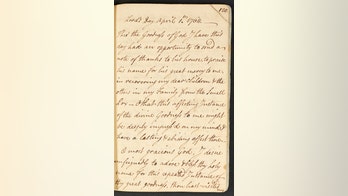 Lord's Day April 1st 1764
Thro the Goodness of God I have this
day had an opportunity to send a
note of thanks to his house, to praise
his name for his great mercy to me
in recovering my dear Children & the
others in my Family from the Small
Pox — O that this affecting Instance
of the divine Goodness to me might
be deeply impress'd on my mind &
have a lasting & abiding effect there
O most gracious God, I desire
unfeignedly to adore & bless thy holy
name for this repeated Instance of
thy great goodness, thou hast visited